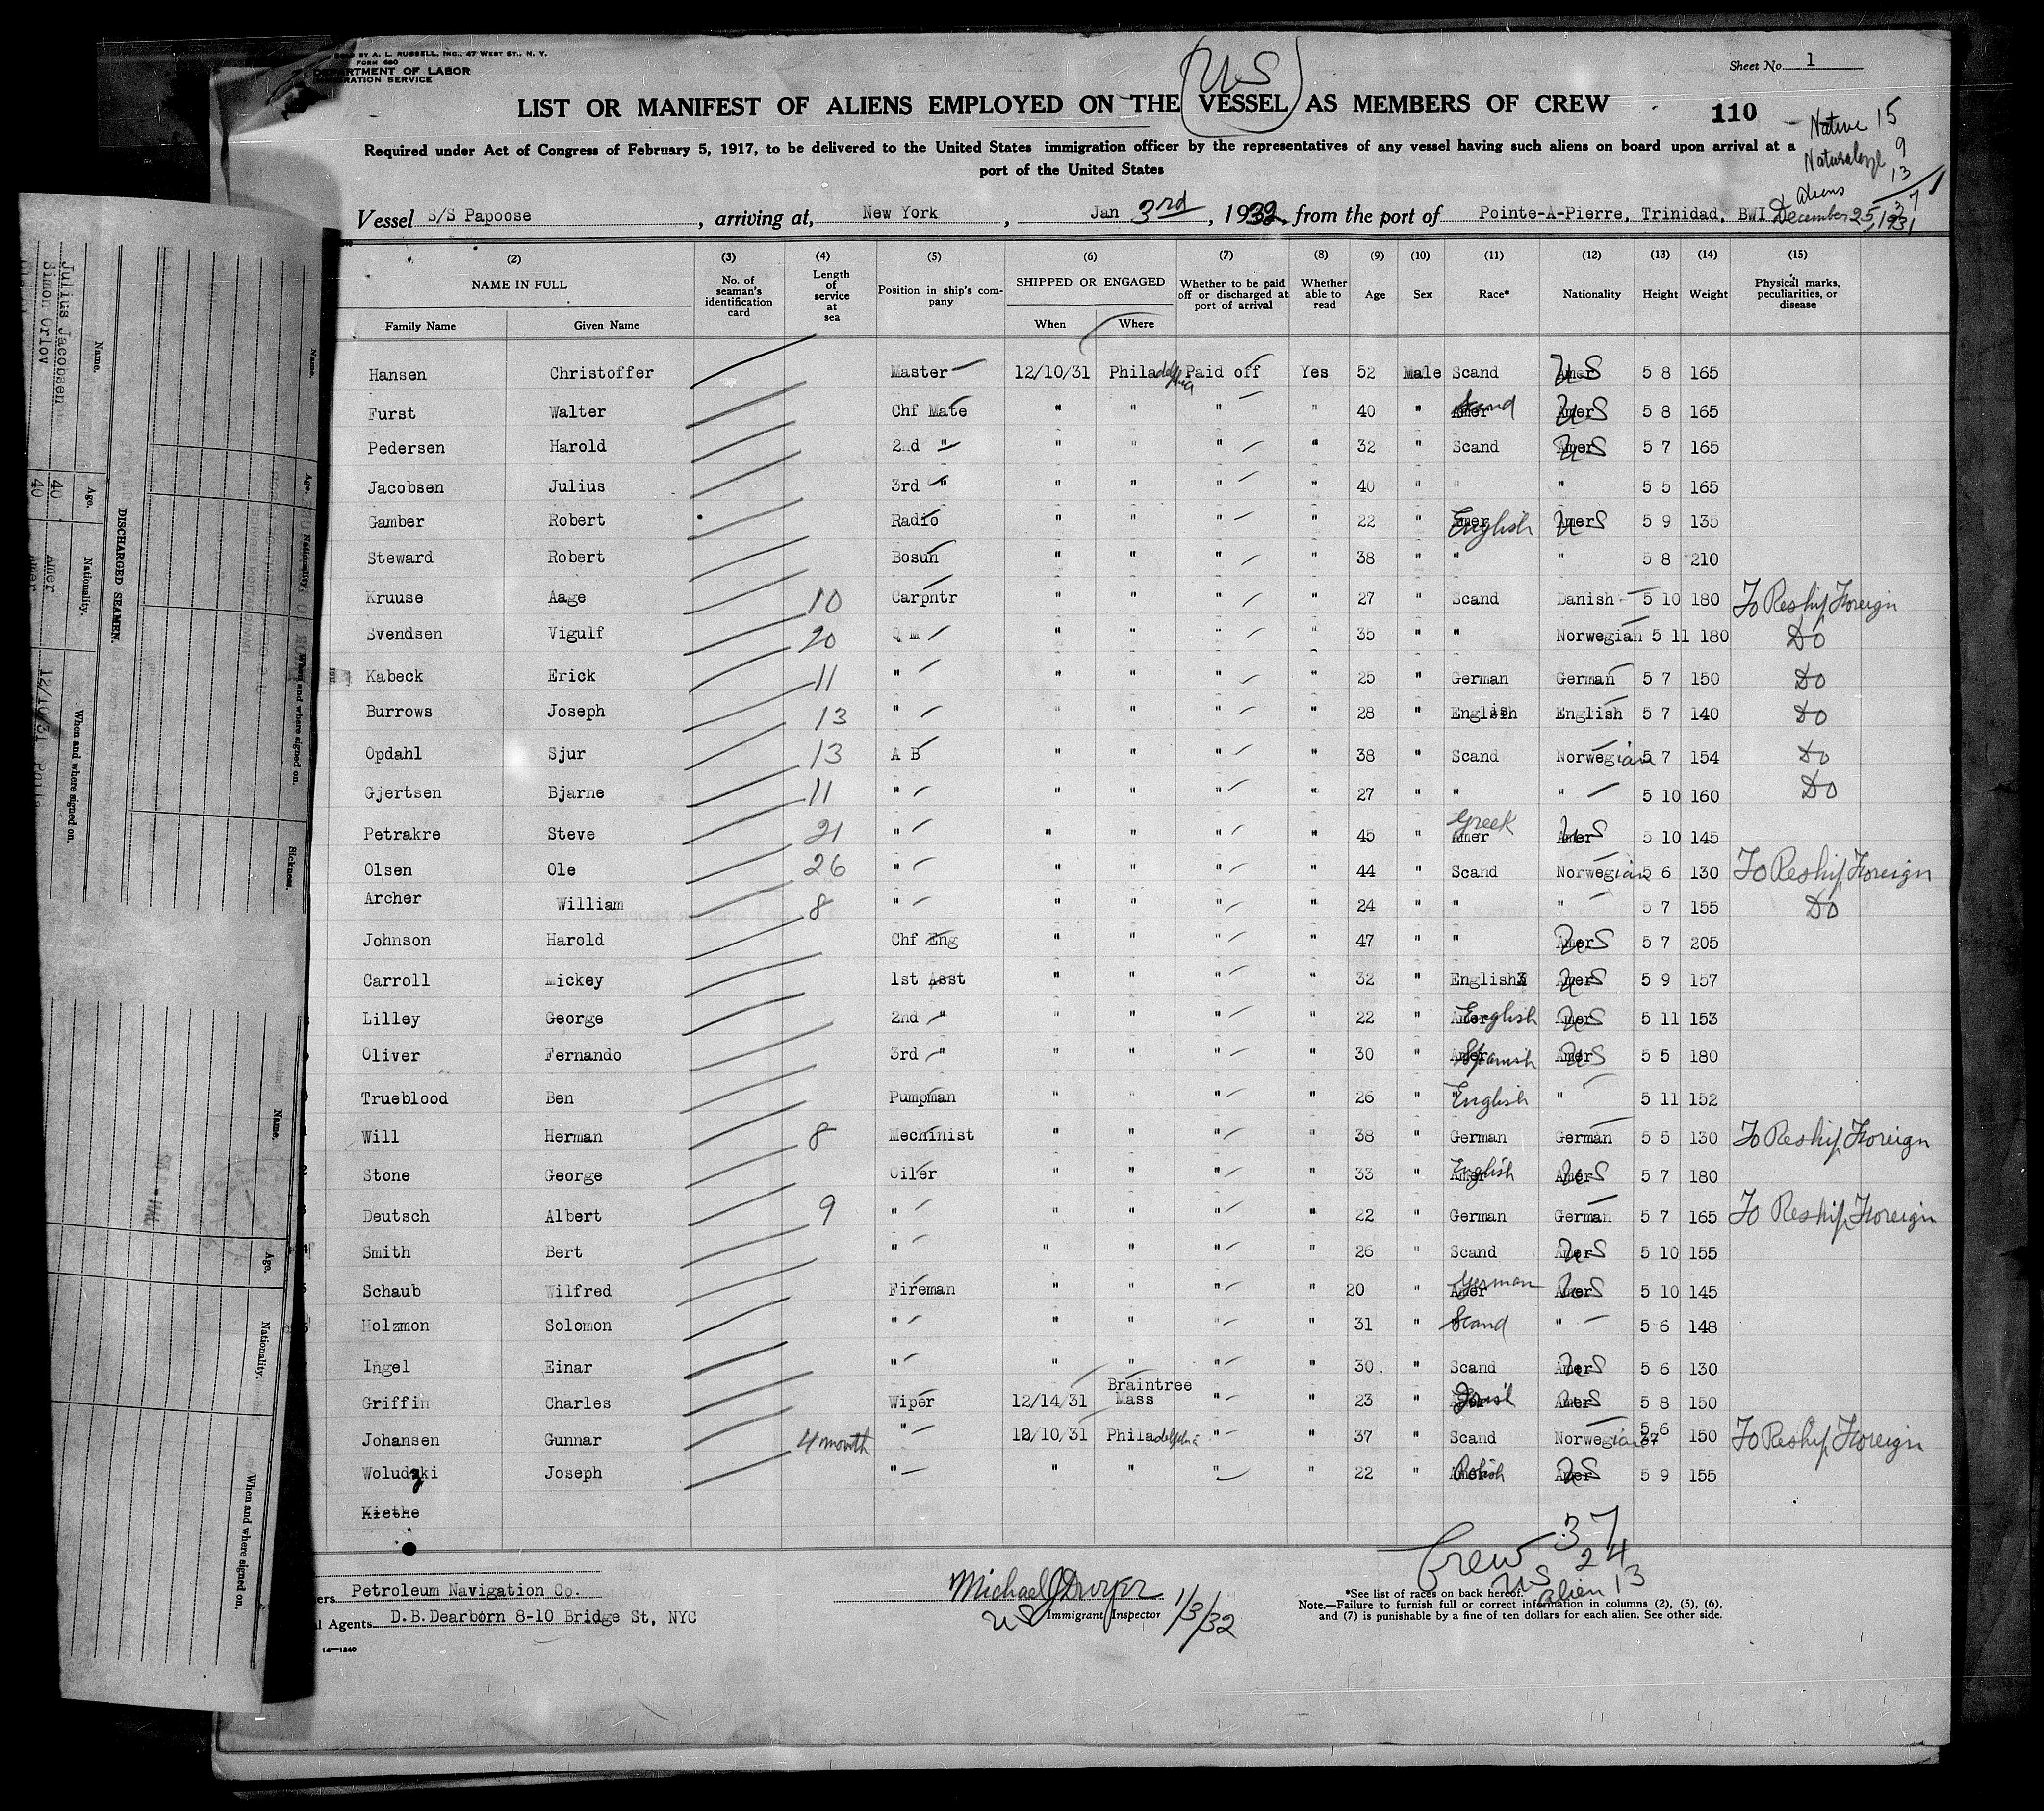 BY A. L. RUSSELL, INC., 47 WEST ST., N. Y.
FORM 680
DEPARTMENT OF LABOR
IMMIGRATION SERVICE
Sheet No. 1
US
LIST OR MANIFEST OF ALIENS EMPLOYED ON THE VESSEL AS MEMBERS OF CREW
110
Native 15
9
Aliens 13
37
Required under Act of Congress of February 5, 1917, to be delivered to the United States immigration officer by the representatives of any vessel having such aliens on board upon arrival at a
port of the United States
Vessel S/S Papoose, arriving at, New York, Jan 3rd, 1932 from the port of Pointe-A-Pierre, Trinidad, BWI December 25, 1931
(2) (3) (4) (5) (6) (7) (8) (9) (10) (11) (12) (13) (14) (15)
NAME IN FULL
Family Name Given Name
No. of seaman's identification card
Length of service at sea
Position in ship's company
SHIPPED OR ENGAGED
When Where
Whether to be paid off or discharged at port of arrival
Whether able to read
Age Sex Race* Nationality Height Weight
Physical marks, peculiarities, or disease
Hansen Christoffer Master 12/10/31 Philadelphia Paid off Yes 52 Male Scand US 5 8 165
Furst Walter Chf Mate " " " " 40 " Scand US 5 8 165
Pedersen Harold 2nd " " " " " 32 " Scand US 5 7 165
Jacobsen Julius 3rd " " " " " 40 " " " 5 5 165
Gamber Robert Radio " " " " 22 " English US 5 9 135
Steward Robert Bosun " " " " 38 " " " 5 8 210
Kruuse Aage 10 Carpntr " " " " 27 " Scand Danish 5 10 180 To Reship Foreign
Svendsen Vigulf 20 Q m " " " " 35 " " Norwegian 5 11 180 Do
Kabeck Erick 11 " " " " " 25 " German German 5 7 150 Do
Burrows Joseph 13 " " " " " 28 " English English 5 7 140 Do
Opdahl Sjur 13 A B " " " " 38 " Scand Norwegian 5 7 154 Do
Gjertsen Bjarne 11 " " " " " 27 " " " 5 10 160 Do
Petrakre Steve 21 " " " " " 45 " Greek US 5 10 145
Olsen Ole 26 " " " " " 44 " Scand Norwegian 5 6 130 To Reship Foreign
Archer William 8 " " " " " 24 " " " 5 7 155 Do
Johnson Harold Chf Eng " " " " 47 " " US 5 7 205
Carroll Mickey 1st Asst " " " " 32 " English US 5 9 157
Lilley George 2nd " " " " " 22 " English US 5 11 153
Oliver Fernando 3rd " " " " " 30 " Spanish US 5 5 180
Trueblood Ben Pumpman " " " " 26 " English " 5 11 152
Will Herman 8 Mechinist " " " " 38 " German German 5 5 130 To Reship Foreign
Stone George Oiler " " " " 33 " English US 5 7 180
Deutsch Albert 9 " " " " " 22 " German German 5 7 165 To Reship Foreign
Smith Bert " " " " " 26 " Scand US 5 10 155
Schaub Wilfred Fireman " " " " 20 " German US 5 10 145
Holzmon Solomon " " " " " 31 " Scand " 5 6 148
Ingel Einar " " " " " 30 " Scand US 5 6 130
Griffin Charles Wiper 12/14/31 Braintree Mass " " 23 " US 5 8 150
Johansen Gunnar 4 month " 12/10/31 Philadelphia " " 37 " Scand Norwegian 5 6 150 To Reship Foreign
Woludzki Joseph " " " " " 22 " Polish US 5 9 155
Kiethe
Crew 37
US 24
alien 13
Petroleum Navigation Co.
Agents D.B.Dearborn 8-10 Bridge St, NYC
14—1240
Michael J Dwyer
US Immigrant Inspector 1/3/32
*See list of races on back hereof.
Note.—Failure to furnish full or correct information in columns (2), (5), (6),
and (7) is punishable by a fine of ten dollars for each alien. See other side.
DISCHARGED SEAMEN.
Name. Age. Nationality. When and where signed on.
Julius Jacobsen 40 Amer 12/10/31 Phila
Simon Orlov 40 Amer
Name. Age. Nationality. When and where signed on. Sickness.
Name. Age. Nationality. When and where signed on.